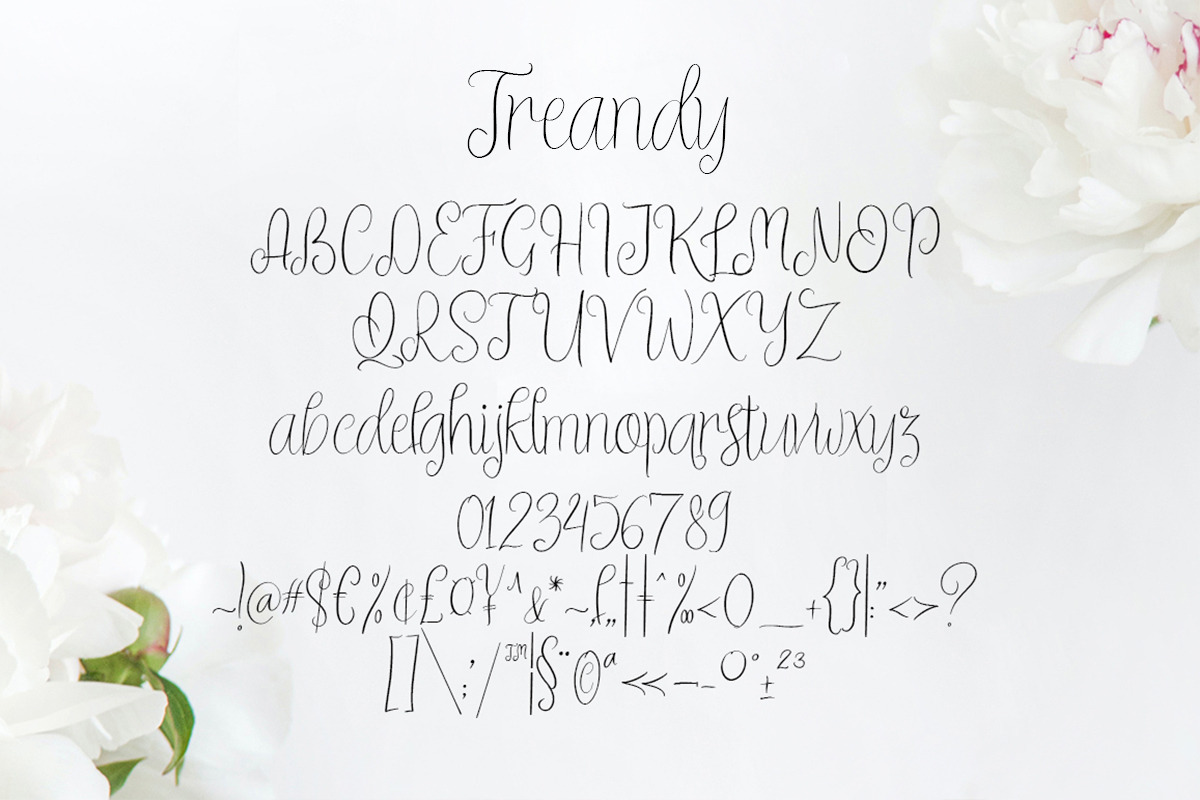 Treandy
ABCDEFGHIJKLMNOP
QRSTUVWXYZ
abcdefghijklmnopqrstuvwxyz
0123456789
~!@#$€%¢£¤¥^&*~ƒ„†‡ˆ‰<O__+{}|:”<>?
[]\;’/™¦§¨©ª<<—-O°±²³